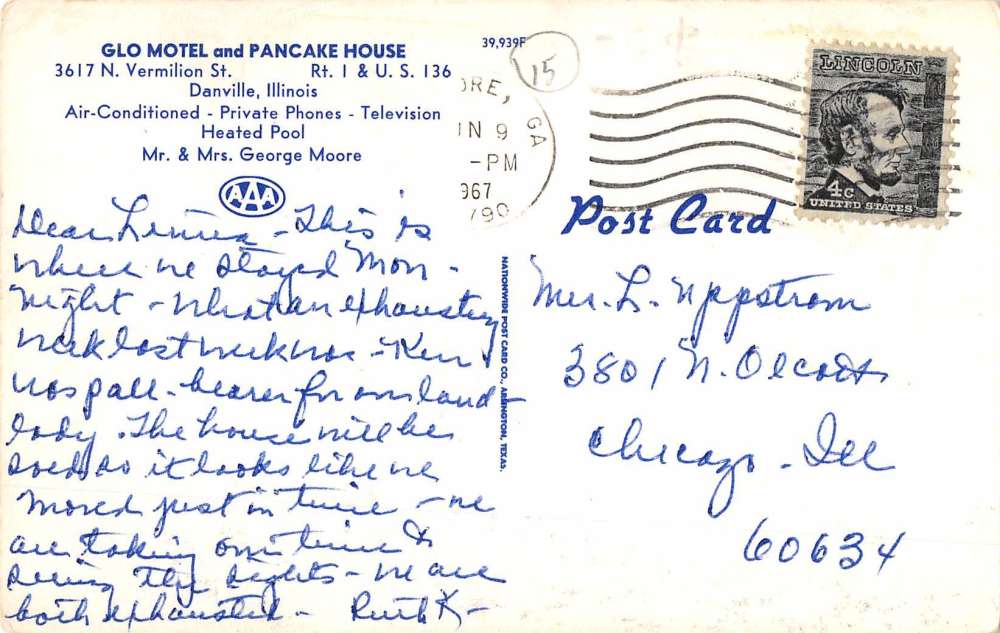 GLO MOTEL and PANCAKE HOUSE
3617 N. Vermilion St. Rt. 1 & U. S. 136
Danville, Illinois
Air-Conditioned - Private Phones - Television
Heated Pool
Mr. & Mrs. George Moore
AAA
39,939F
15
ORE,
GA
IN 9
-PM
967
790
LINCOLN
4c
UNITED STATES
Post Card
Dear Linnea - This is
where we stayed Mon -
night - What an exhausting
week last week was - Ken
was pall-bearer for our land-
lady. The house will be
sold so it looks like we
moved just in time - we
are taking our time &
seeing the sights - we are
both exhausted - Ruth K -
NATIONWIDE POST CARD CO., ARLINGTON, TEXAS.
Mrs. L. Uppstrom
3801 N. Olcott
Chicago - Ill
60634